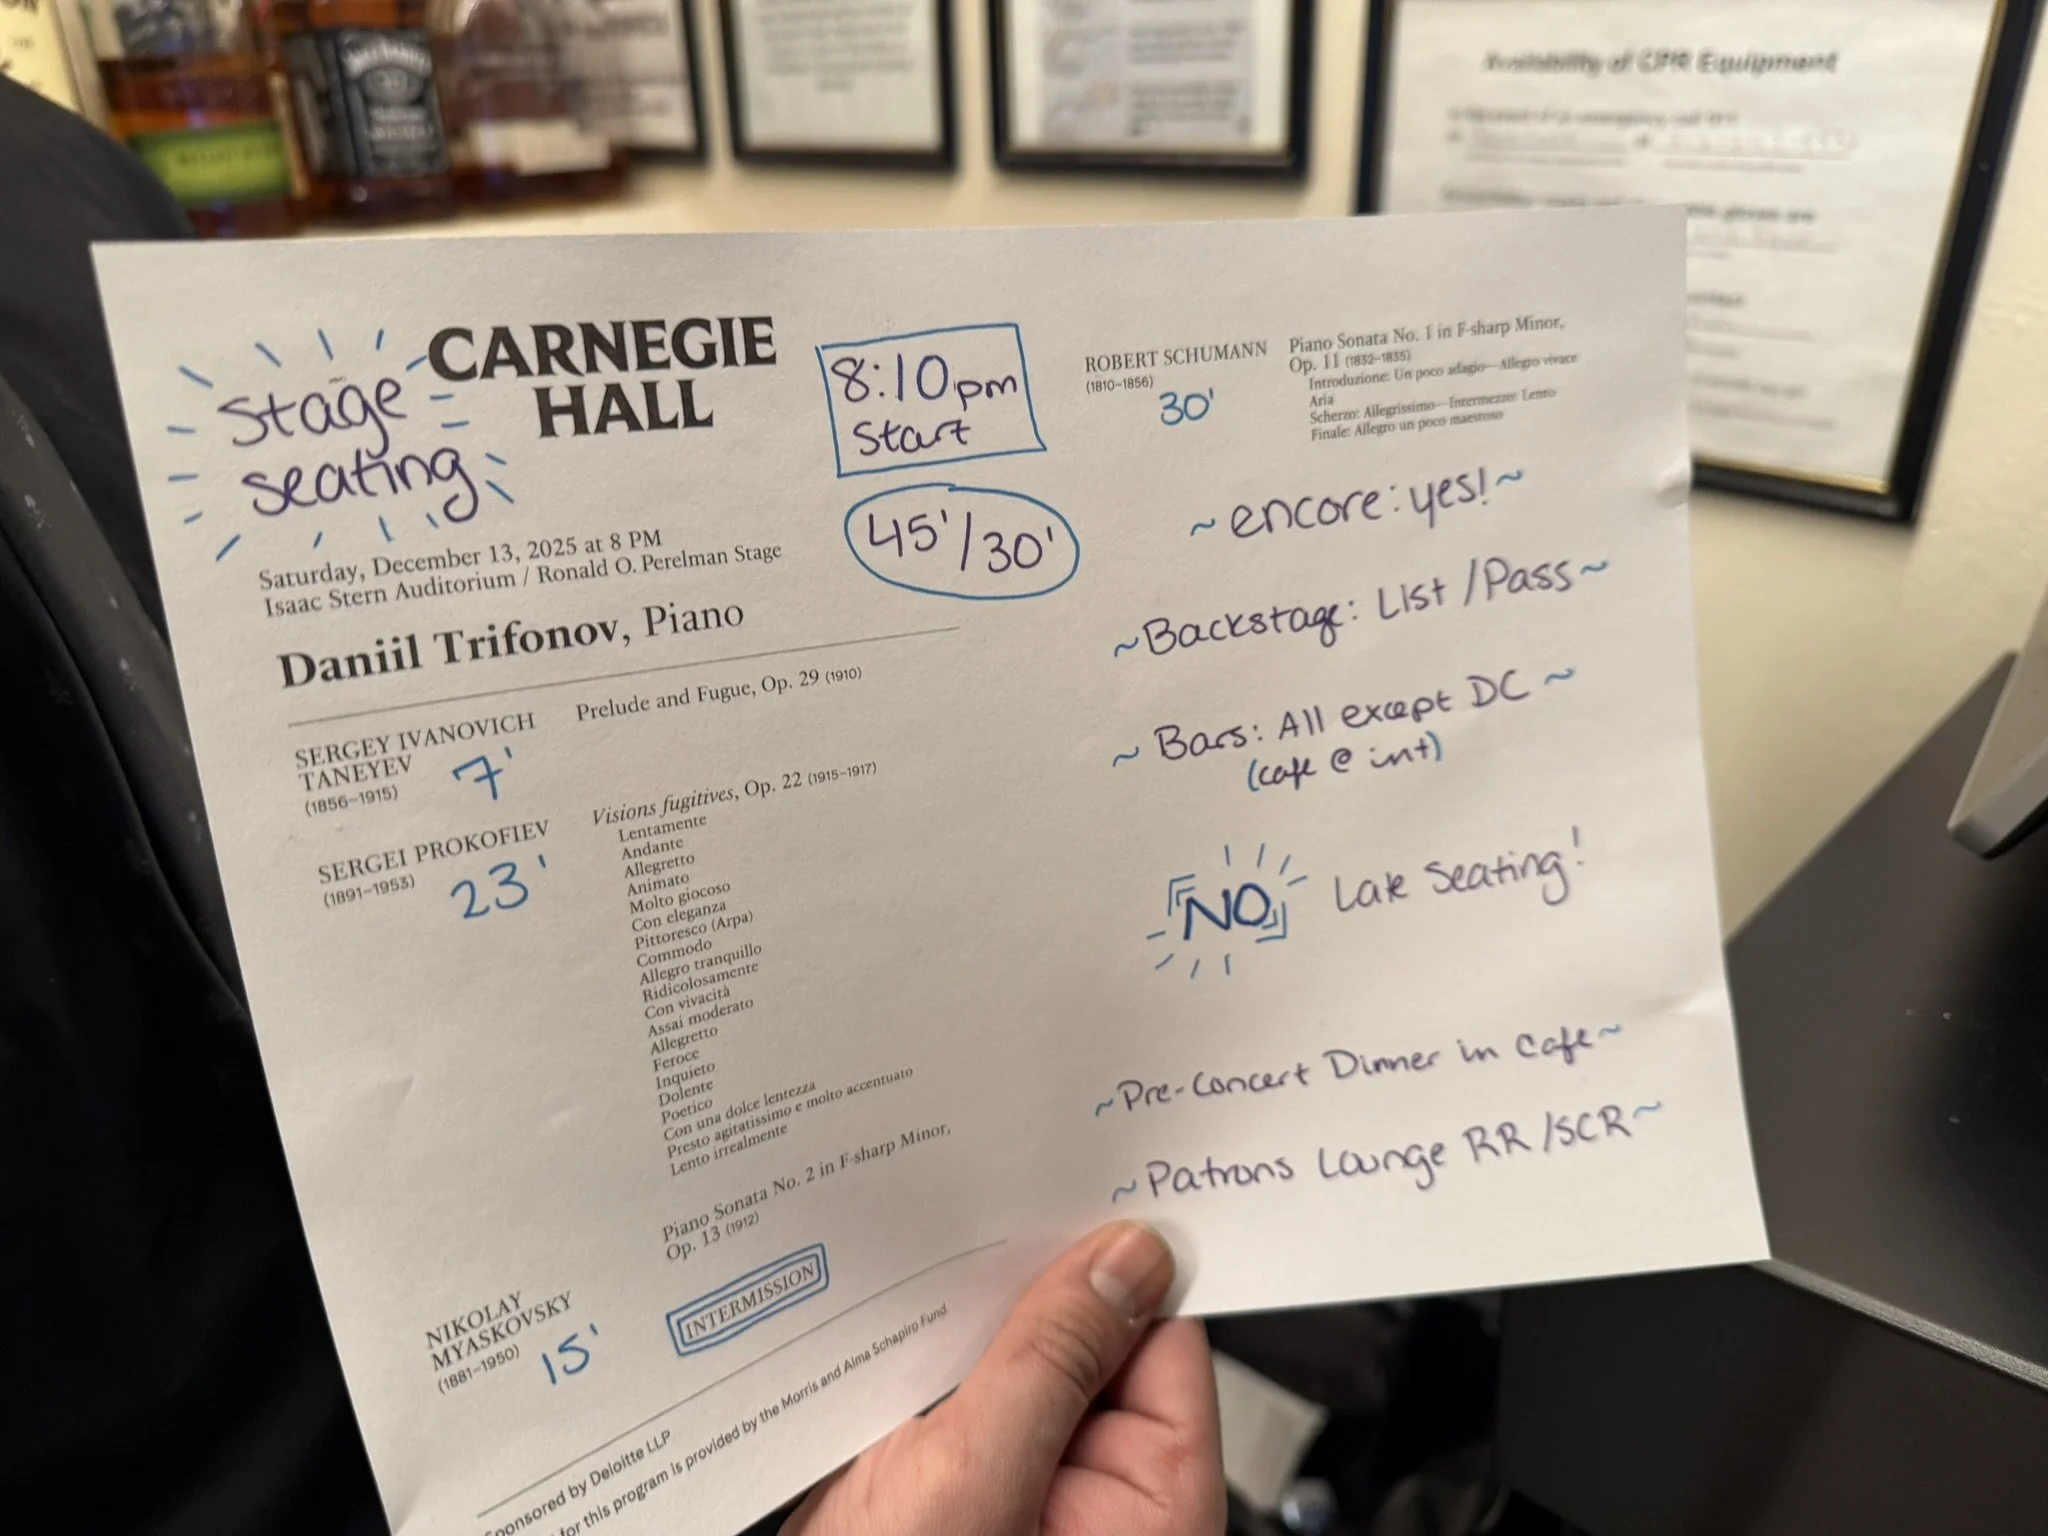 Stage
seating
CARNEGIE
HALL
8:10pm
Start
45'/30'
Saturday, December 13, 2025 at 8 PM
Isaac Stern Auditorium / Ronald O. Perelman Stage
Daniil Trifonov, Piano
SERGEY IVANOVICH
TANEYEV
(1856–1915)
7'
Prelude and Fugue, Op. 29 (1910)
SERGEI PROKOFIEV
(1891–1953)
23'
Visions fugitives, Op. 22 (1915–1917)
Lentamente
Andante
Allegretto
Animato
Molto giocoso
Con eleganza
Pittoresco (Arpa)
Commodo
Allegro tranquillo
Ridicolosamente
Con vivacità
Assai moderato
Allegretto
Feroce
Inquieto
Dolente
Poetico
Con una dolce lentezza
Presto agitatissimo e molto accentuato
Lento irrealmente
NIKOLAY
MYASKOVSKY
(1881–1950)
15'
Piano Sonata No. 2 in F-sharp Minor,
Op. 13 (1912)
INTERMISSION
Sponsored by Deloitte LLP
for this program is provided by the Morris and Alma Schapiro Fund.
ROBERT SCHUMANN
(1810–1856)
30'
Piano Sonata No. 1 in F-sharp Minor,
Op. 11 (1832–1835)
Introduzione: Un poco adagio—Allegro vivace
Aria
Scherzo: Allegrissimo—Intermezzo: Lento
Finale: Allegro un poco maestoso
~ encore: yes! ~
~ Backstage: List / Pass ~
~ Bars: All except DC ~
(cafe @ int)
NO Late Seating!
~ Pre-Concert Dinner in Cafe ~
~ Patrons Lounge RR / SCR ~
Availability of CPR Equipment